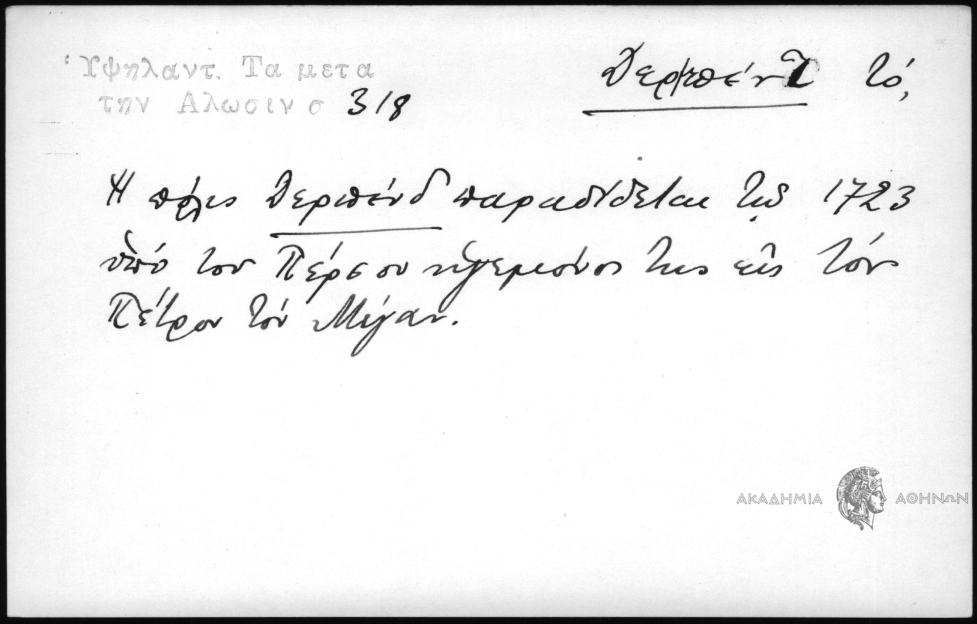 Ὑψηλαντ. Τα μετα
την Αλωσιν σ 318
Δερμπέντ τό,
Η πόλις Δερπένδ παραδίδεται τῷ 1723
ὑπό του Πέρσου ηγεμόνος της εἰς τόν
Πέτρον τόν Μέγαν.
ΑΚΑΔΗΜΙΑ ΑΘΗΝΩΝ